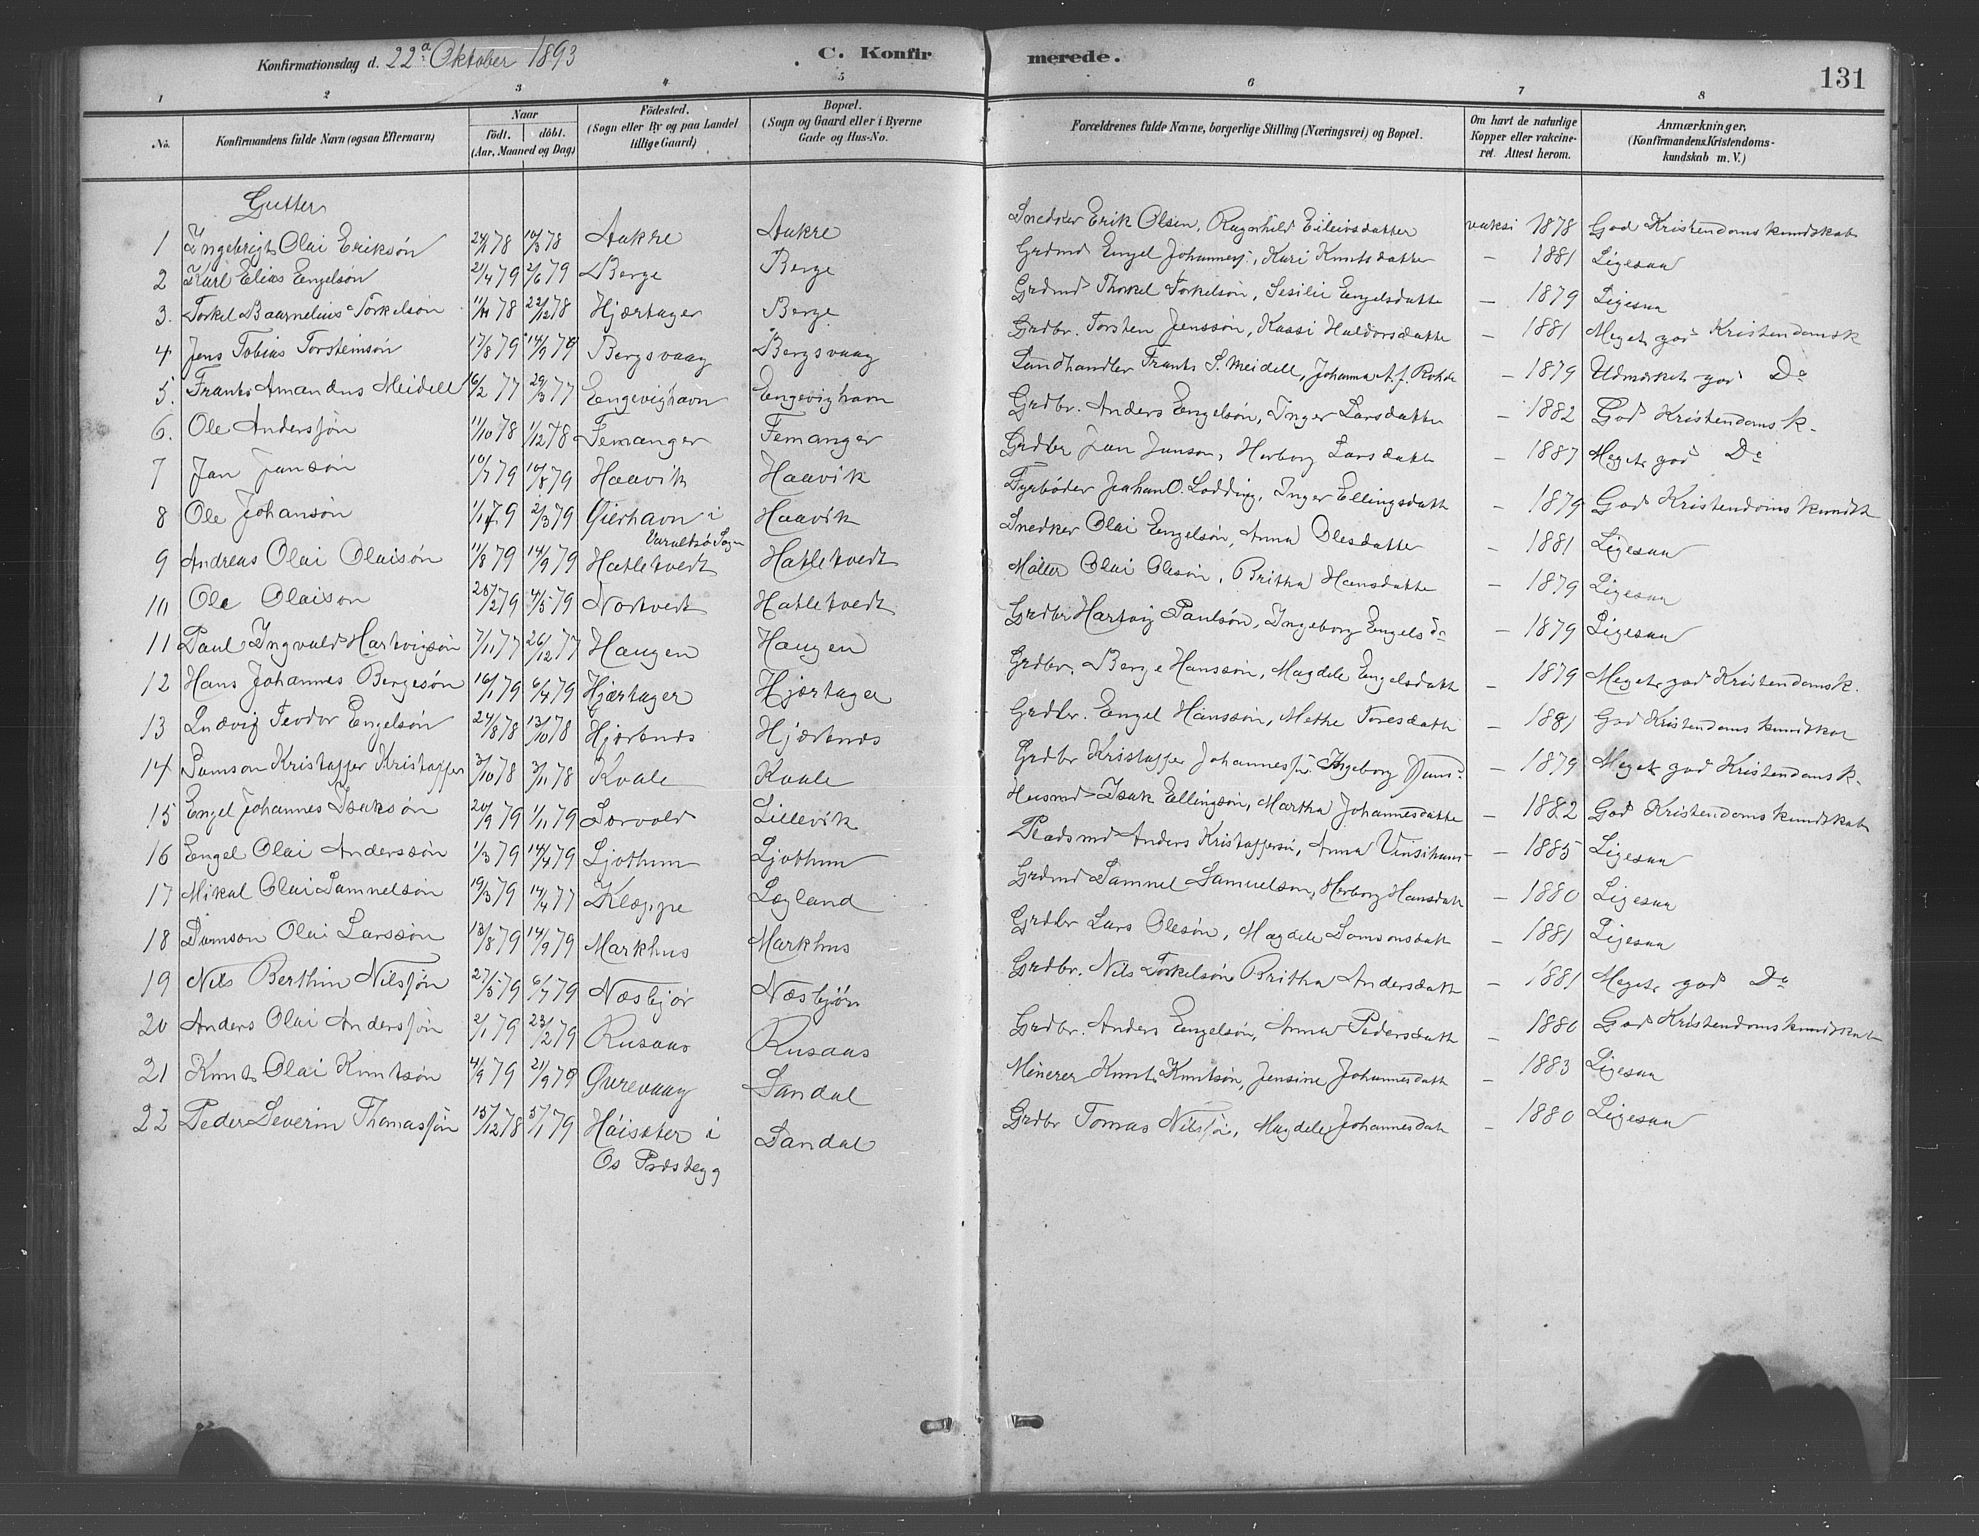 Konfirmationsdag d. 22de Oktober 1893 C. Konfirmerede. 131
1 2 3 4 5 6 7 8
No. Konfirmandens fulde Navn (ogsaa Efternavn) Naar födt. döbt. (Aar, Maaned og Dag) Födested. (Sogn eller By og paa Landet tillige Gaard) Bopæl. (Sogn og Gaard eller i Byerne Gade og Hus-No. Forældrenes fulde Navne, borgerlige Stilling (Næringsvei) og Bopæl. Om havt de naturlige Kopper eller vakcineret. Attest herom. Anmærkninger. (Konfirmandens Kristendomskundskab m. V.)
Gutter
1 Ingebrigt Olai Eriksøn 24/1 78 10/3 78 Aakre Aakre Snedker Erik Olsen, Ragnhild Eileivsdatter vaksi 1878 God Kristendomskundskab
2 Karl Elias Engelsøn 21/4 79 2/6 79 Berge Berge Grdmd Engel Johannesj., Kari Knutsdatter – 1881 Ligesaa
3. Torkel Baarnelius Torkelsøn 11/11 78 22/12 78 Hjærtager Berge Grdmd Thorkel Torkelsøn, Sesilie Engelsdatte – 1879 Ligesaa
4 Jens Tobias Torsteinsøn 17/8 79 14/9 79 Bergsvaag Bergsvaag Grdbr. Torsten Jenssøn, Kaasi Haldorsdatte – 1881 Meget god Kristendomsk
5. Frants Amandus Meidell 16/2 77 29/3 77 Engevighavn Engevighavn Landhandler Frants S. Meidell, Johanna A. f. Rohde – 1879 Udmærket god Do
6. Ole Andersjøn 11/10 78 1/12 78 Femanger Femanger Grdbr. Anders Engelsøn, Inger Larsdatte – 1882 God Kristendomsk.
7 Jan Jansøn 10/7 79 10/8 79 Haavik Haavik Grdbr Jan Janson, Herborg Larsdatte – 1887 Meget god Do
8 Ole Johansøn 1/1 79 2/3 79 Gierhavn i Varaldsø Sogn Haavik Fyrbøder Johan O. Lodding, Inger Ellingsdatt – 1879 God Kristendomskundsk
9 Andreas Olai Olaisøn 11/8 79 14/9 79 Hatletvedt Hatletvedt Snedker Olai Engelsøn, Anna Olesdatter – 1881 Ligesaa
10 Ole Olaison 28/2 79 4/5 79 Nortvedt Hatletvedt Møller Olai Olesøn, Britha Hansdatte – 1879 Ligesaa
11 Paul Ingvald Hartvigsøn 7/11 77 26/12 77 Haugen Haugen Grdbr Hartvig Paulsøn, Ingeborg Engelsd – 1879 Ligesaa
12 Hans Johannes Bergesøn 16/1 79 6/4 79 Hjærtager Hjærtager Grdbr. Berge Hanssøn, Magdele Engelsdatt – 1879 Meget god Kristendomsk.
13 Ludvig Teodor Engelsøn 24/8 78 13/10 78 Hjørtnes Hjørtnes Grdbr. Engel Hanssøn, Methe Toresdatte – 1881 God Kristendomskundskab
14 Samson Kristaffer Kristaffers 3/10 78 3/11 78 Kvale Kvale Grdbr Kristaffer Johannessøn Ingeborg – 1879 Meget god Kristendomsk.
15 Engel Johannes Isaksøn 20/9 79 1/11 79 Sørvold Lillevik Husmd Isak Ellingsøn, Martha Johannesdatte – 1882 God Kristendomskundskab
16 Engel Olai Anderssøn 1/3 79 14/4 79 Ljothum Ljothum Pladsmd Anders Kristaffersø, Anna – 1885 Ligesaa
17 Mikal Olai Samuelsøn 19/3 79 14/4 77 Kleppe Løgland Grdmd Samuel Samuelson, Herborg Hansdatt – 1880 Ligesaa
18 Samson Olai Larssøn 13/8 79 14/9 79 Markhus Markhus Grdbr Lars Olesøn, Magdele Samsonsdatt – 1881 Ligesaa
19 Nils Berthin Nilsjøn 27/5 79 6/7 79 Næsbjør Næsbjørn Grdbr. Nils Torkelsøn Britha Andersdatt – 1881 Meget god Do
20 Anders Olai Andersjøn 2/1 79 23/2 79 Rusaas Rusaas Grdbr. Anders Engelsøn, Anna Pedersdatt – 1880 God Kristendomskundskab
21 Knut Olai Knutsøn 4/9 79 21/9 79 Øvrevaag Sandal Minerer Knut Knutsøn, Jensine Johannesdatt – 1883 Ligesaa
22 Peder Severin Thomasjøn 15/12 78 5/1 79 Haisæter i Os Præstegg Sandal Grdbr Tomas Nilsjø, Magdele Johannesdatt – 1880 Ligesaa